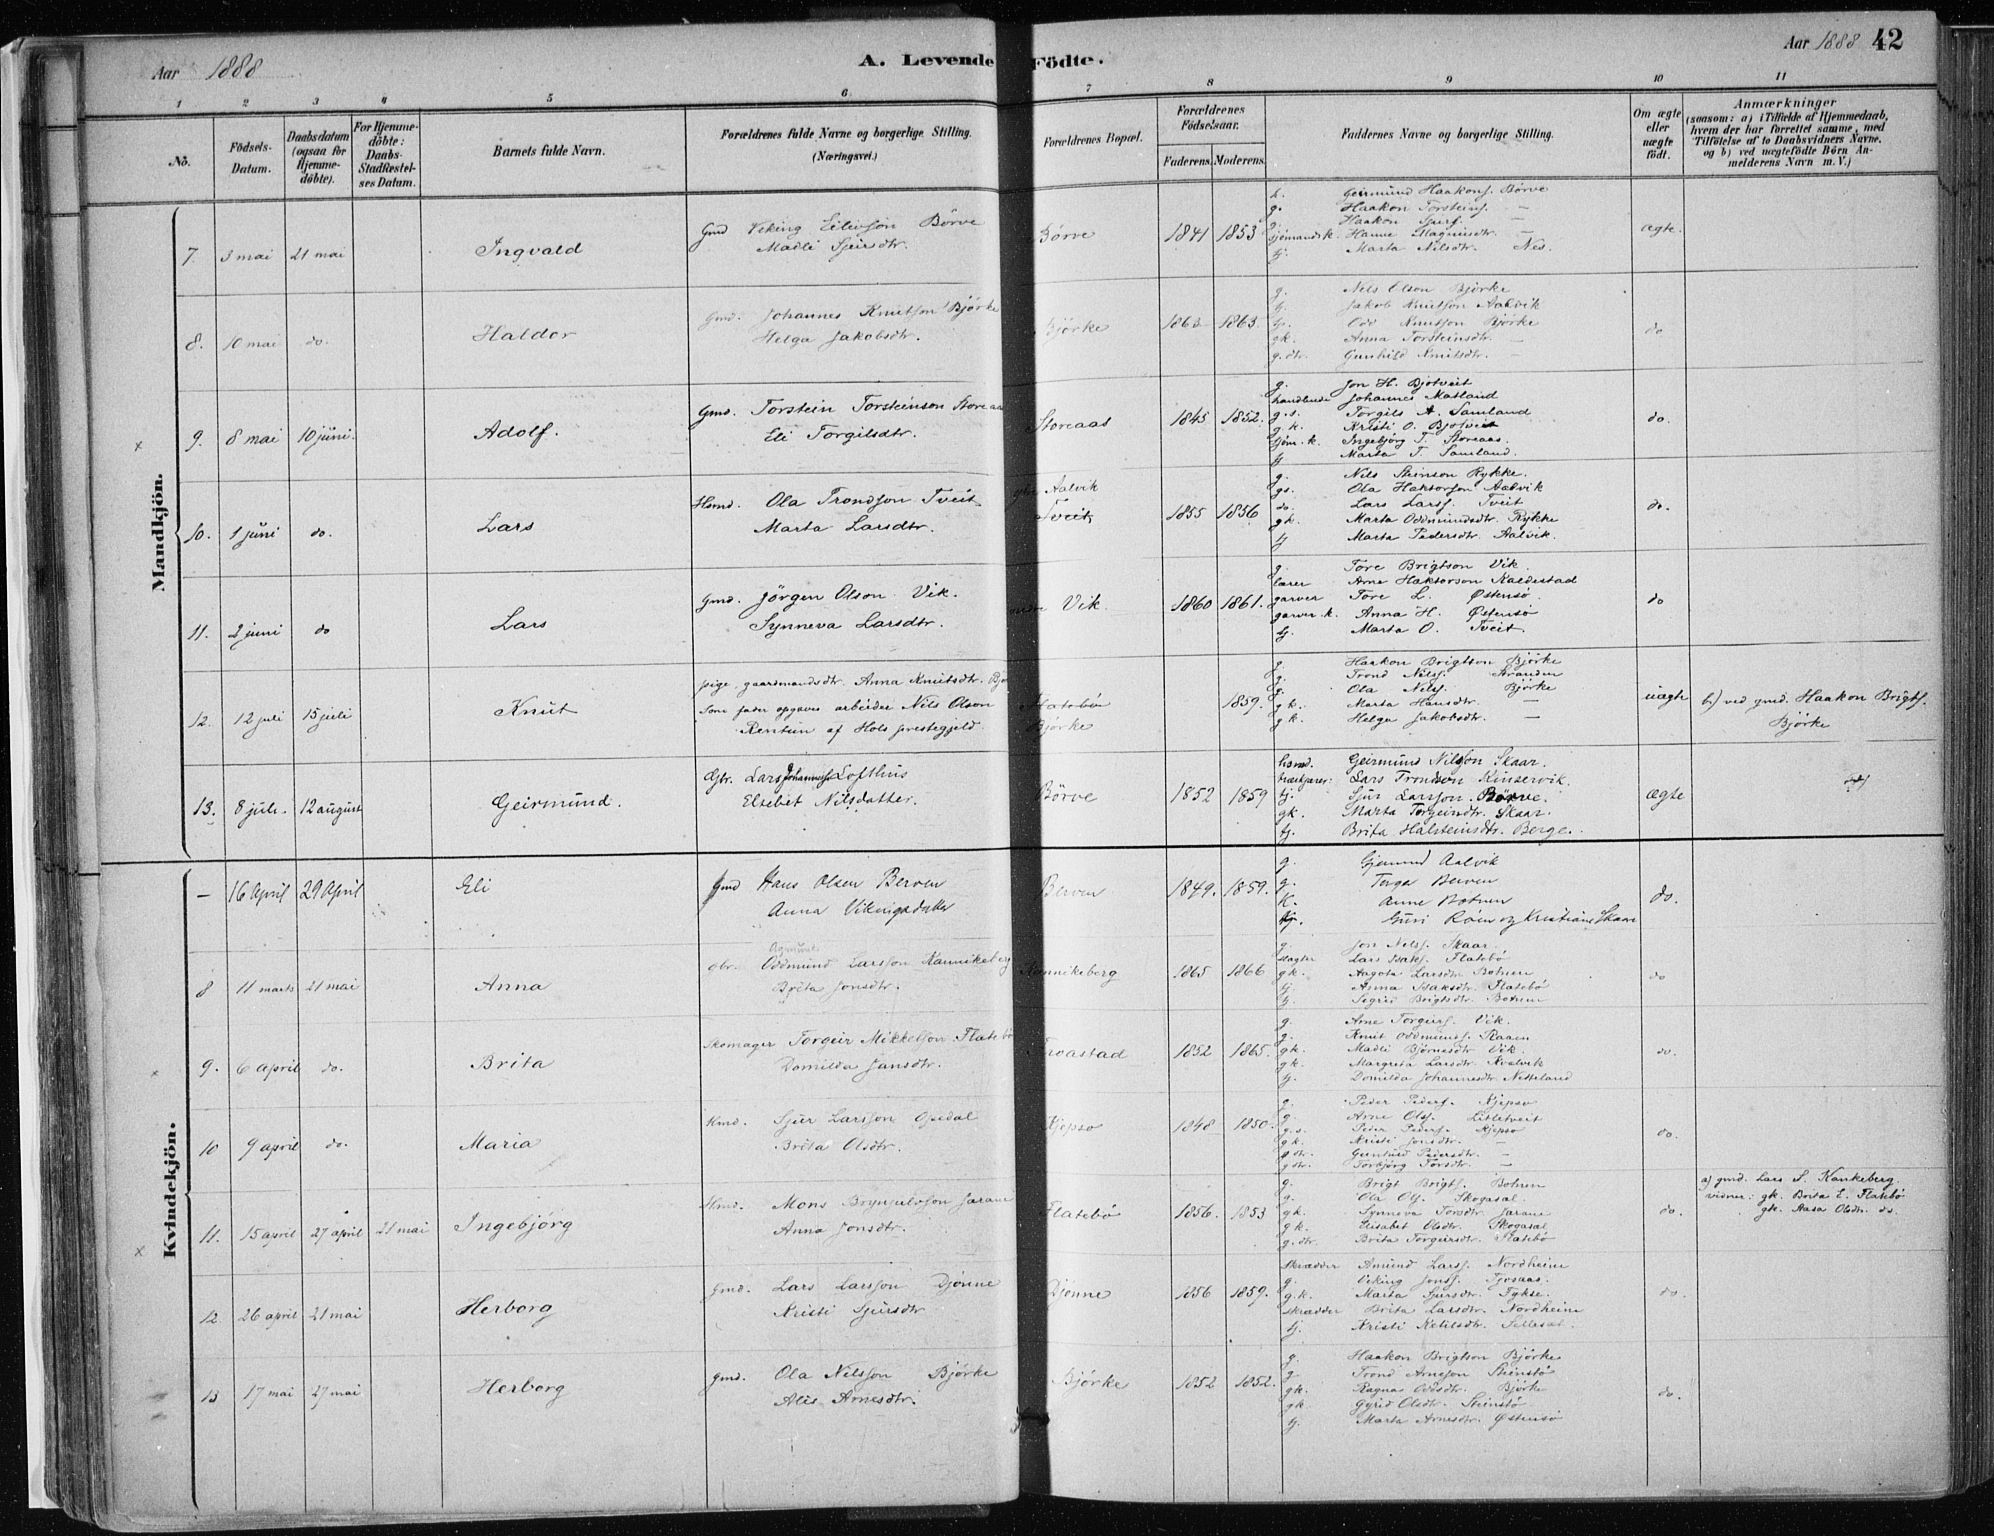 Aar 1888
A. Levende Födte.
Aar 1888 42
1 2 3 4 5 6 7 8 9 10 11
No.
Födsels-Datum.
Daabsdatum (ogsaa for Hjemme-döbte).
For Hjemme-döbte: Daabs-Stad Restel-ses Datum.
Barnets fulde Navn.
Forældrenes fulde Navne og borgerlige Stilling.
(Næringsvei.)
Forældrenes Bopæl.
Forældrenes Födselsaar.
Faderens. Moderens.
Faddernes Navne og borgerlige Stilling.
Om ægte eller uægte födt.
Anmærkninger
(saasom: a) i Tilfælde af Hjemmedaab,
hvem der har forrettet samme, med
Tilföielse af to Daabsvidners Navne,
og b) ved uægtefödte Börn An-
melderens Navn m. V.)
Mandkjön.
7. 3 mai 21 mai Ingvald
Gmd Viking Eilivson Börve
Madli Sjursdtr.
Börve 1841 1853
Geirmund Haakons. Börve
g. Haakon Torsteins. —
Haakon Sjurs. —
sjömandsk. Hanne Magnusdtr. —
tj. Marta Nilsdtr. Nes.
ægte.
8. 10 mai do. Haldor
Gmd. Johannes Knutson Björke
Helga Jakobsdtr.
Björke 1863.
g. Nels Olson Björke
tj. Jakob Knutson Aalvik
tj. Odd Knutson Björke
gk. Anna Torsteinsdtr. —
g.dtr. Gunhild Knutsdtr. —
do
9. 8 mai 10 juni. Adolf.
Gmd. Torstein Torsteinson Storeaas
Eli Torgilsdtr.
Storeaas 1845 1852.
g. Jon H. Bjotveit
handlende Johannes Matland
g.s. Torgils A. Samland
g.k. Kristi O. Bjotveit
sjöm.k. Ingebjörg T. Storeaas.
tj Marta T. Samland.
do.
10. 1 juni do. Lars
Hsmd. Ola Trondson Tveit
Marta Larsdtr.
Aalvik
Tveit 1855 1856
g. Nils Steinson Rykke.
gs. Ola Haktorson Aalvik
do. Lars Larss. Tveit
gk. Marta Oddmundsdtr. Rykke
tj Marta Pedersdtr. Aalvik.
do.
11. 2 juni do Lars
Gmd. Jörgen Olson Vik.
Synneva Larsdtr.
Vik. 1860 1861.
g. Tore Brigtson Vik.
lærer Arne Haktorson Kaldestad
garver Tore L. Östensö
garver.k. Anna H. Östensö
tj. Marta O. Tveit.
do
12. 12 juli 15 juli Knut
pige, gaardmandsdtr. Anna Knutsdtr.
Som fader opgaves arbeider Nils Olson
Rentun af Hols prestegjeld
Flatebö
Björke 1859.
g. Haakon Brigtson Björke
g. Trond Nelss. Stranden
g. Ola Nelss. Björke
gk. Marta Hansdtr. —
gk. Helga Jakobsdtr. —
uægte
b) ved gmd. Haakon Brigts.
Björke
13. 8 juli. 12 august Geirmund.
Gbr. Lars Johanness. Lofthus
Elsebet Nilsdatter.
Börve 1852 1859
husmd. Geirmund Nilsson Skaar.
Lars Trondson Kinservik.
tj. Sjur Larsson Börve.
gk. Marta Torgeirsdtr. Skaar.
tj. Brita Halsteinsdtr. Berge.
ægte
Kvindekjön.
— 16 April 29 April Eli
Gmd Hans Olsen Berven
Anna Vikingsdatter
Berven 1849. 1859.
g. Gjermund Aalvik
g. Torge Berven
K. Anne Botnen
tj. Guri Röen og Kristiane Skaar
do.
8 11 marts 21 mai Anna
Gbr. Oddmund Larsson Kannikeberg
Brita Jonsdtr.
Kannikeberg 1865 1866
g. Jon Nelss. Skaar.
slagter Lars Isaks. Flatebö
gk. Aagota Larsdtr. Botnen
tj. Anna Isaksdtr. Flatebö
tj. Segrid Brigtsdtr. Botnen
do
9. 6 april do. Brita
Skomager Torgeir Mikkelson Flatebö
Domilda Jansdtr.
Troastad 1852 1865.
g. Arne Torgeirs. Vik.
g. Knut Oddmunds. Raaen
gk. Madli Björnesdtr. Vik.
gk. Margreta Larsdtr. Kvalvik
tj. Domilda Johannesdtr. Netteland
do.
10 9 april do. Maria
Hmd. Sjur Larsson Opedal
Brita Olsdtr.
Kjepsö 1848 1850.
g. Peder Peders. Kjepsö
g. Arne Ols. Litletveit
g.s. Peder Peders. Kjepsö
gk. Kristi Jonsdtr. —
g.dtr. Gunhild Pedersdtr. —
g.dtr. Torbjörg Torsdtr. —
do.
11. 15 april 27 april 21 mai Ingebjörg
Hmd. Mons Brynjulvson Jarane
Anna Jonsdtr.
Flatebö 1856. 1853
g. Brigt Brigts. Botnen
g. Ola Ols. Skogasel.
gk. Synneva Torsdtr. Jarane
gk. Elisabet Olsdtr. Skogasel
g.dtr. Brita Torgeirsdtr. Flatebö
do.
a) gmd. Lars S. Kankeberg
vidner: gk. Brita E. Flatebö
gk. Aasa Olsdtr. do.
12. 26 april 21 mai Herborg
Gmd. Lars Larsson Djönne
Kristi Sjursdtr
Djönne 1856 1859.
skrædder Amund Larss. Nordheim
g. Viking Jons. Tjosaas.
g.k. Marta Sjursdtr. Fykse.
skrædder Brita Larsdtr. Nordheim
tj. Kristi Ketilsdtr. Sellesæt.
do.
13 17 mai 27 mai Herborg
gmd. Ola Nelsson Björke
Alis Arnesdtr.
Björke 1852 1852.
g. Haakon Brigtson Björke
g Trond Arneson Steinstö
gk. Ragna Oddsdtr. Björke
gk. Gyrid Olsdtr. Steinstö
tj. Marta Arnesdtr. Östensö
do.